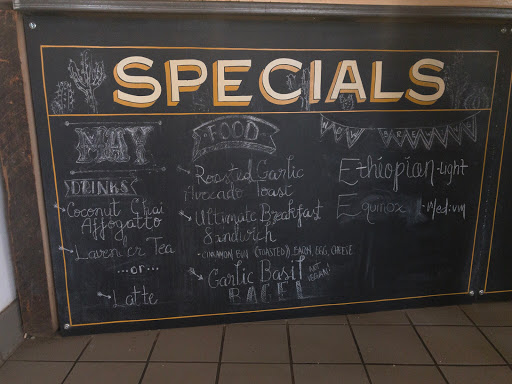 SPECIALS
MAY
DRINKS
Coconut Chai
Affogatto
Lavender Tea
...or...
Latte
FOOD
Roasted Garlic
Avocado Toast
Ultimate Breakfast
Sandwich
CINNAMON BUN (TOASTED), BACON, EGG, CHEESE
Garlic Basil
BAGEL
NOT VEGAN!
NOW BREWING
Ethiopian-light
Equinox - Medium